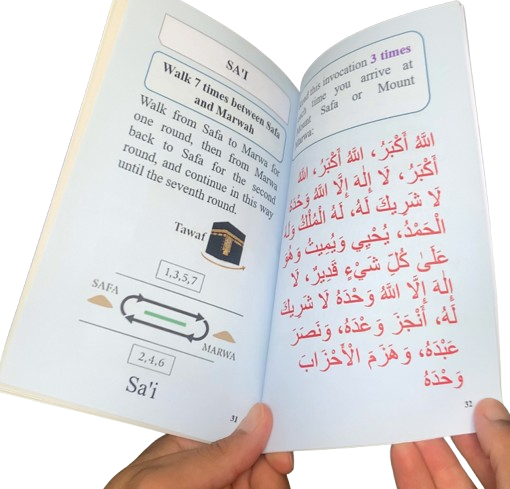 SA'I
Walk 7 times between Safa
and Marwah
Walk from Safa to Marwa for
one round, then from Marwa
back to Safa for the second
round, and continue in this way
until the seventh round.
Tawaf
1,3,5,7
SAFA
MARWA
2,4,6
Sa'i
31
this invocation 3 times
time you arrive at
Safa or Mount
اللَّهُ أَكْبَرُ، اللَّهُ أَكْبَرُ، اللَّهُ
أَكْبَرُ، لَا إِلَهَ إِلَّا اللَّهُ وَحْدَهُ
لَا شَرِيكَ لَهُ، لَهُ الْمُلْكُ وَلَهُ
الْحَمْدُ، يُحْيِي وَيُمِيتُ وَهُوَ
عَلَى كُلِّ شَيْءٍ قَدِيرٌ، لَا
إِلَهَ إِلَّا اللَّهُ وَحْدَهُ لَا شَرِيكَ
لَهُ، أَنْجَزَ وَعْدَهُ، وَنَصَرَ
عَبْدَهُ، وَهَزَمَ الْأَحْزَابَ
وَحْدَهُ
32